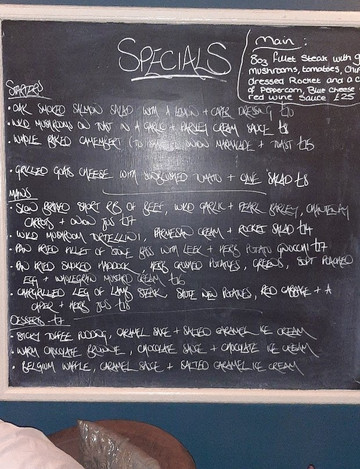 SPECIALS
main:
8oz fillet Steak with g
mushrooms, tomatoes, Chi
dressed Rocket and a c
of Peppercorn, Blue Cheese
red wine Sauce £25
STARTERS
• OAK SMOKED SALMON SALAD WITH A LEMON + CAPER DRESSING £8
• WILD MUSHROOMS ON TOAST IN A GARLIC + PARSLEY CREAM SAUCE £8
• WHOLE BAKED CAMEMBERT (TO SHARE) ONION MARMALADE + TOAST £15
• GRILLED GOATS CHEESE WITH SUNBLUSHED TOMATO + OLIVE SALAD £8
MAINS
• SLOW BRAISED SHORT RIBS OF BEEF, WILD GARLIC + PEARL BARLEY, CHANTENAY
CARROTS + ONION JUS £17
• WILD MUSHROOM TORTELLINI, PARMESAN CREAM + ROCKET SALAD £14
• PAN FRIED FILLET OF STONE BASS WITH LEEK + HERB POTATO GNOCCHI £17
• PAN FRIED SMOKED HADDOCK, HERB CRUSHED POTATOES, GREENS, SOFT POACHED
EGG + WHOLEGRAIN MUSTARD CREAM £16
• CHARGRILLED LEG OF LAMB STEAK, SAUTE NEW POTATOES, RED CABBAGE + A
CAPER + HERB JUS £18
DESSERTS £7
• STICKY TOFFEE PUDDING, CARAMEL SAUCE + SALTED CARAMEL ICE CREAM
• WARM CHOCOLATE BROWNIE, CHOCOLATE SAUCE + CHOCOLATE ICE CREAM
• BELGIUM WAFFLE, CARAMEL SAUCE + SALTED CARAMEL ICE CREAM